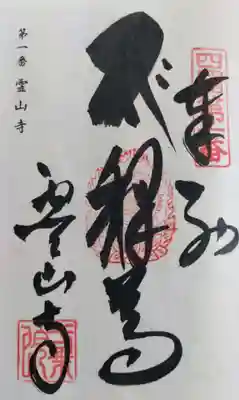 四国第一番
奉納
釋尊
霊山寺
第一番 霊山寺